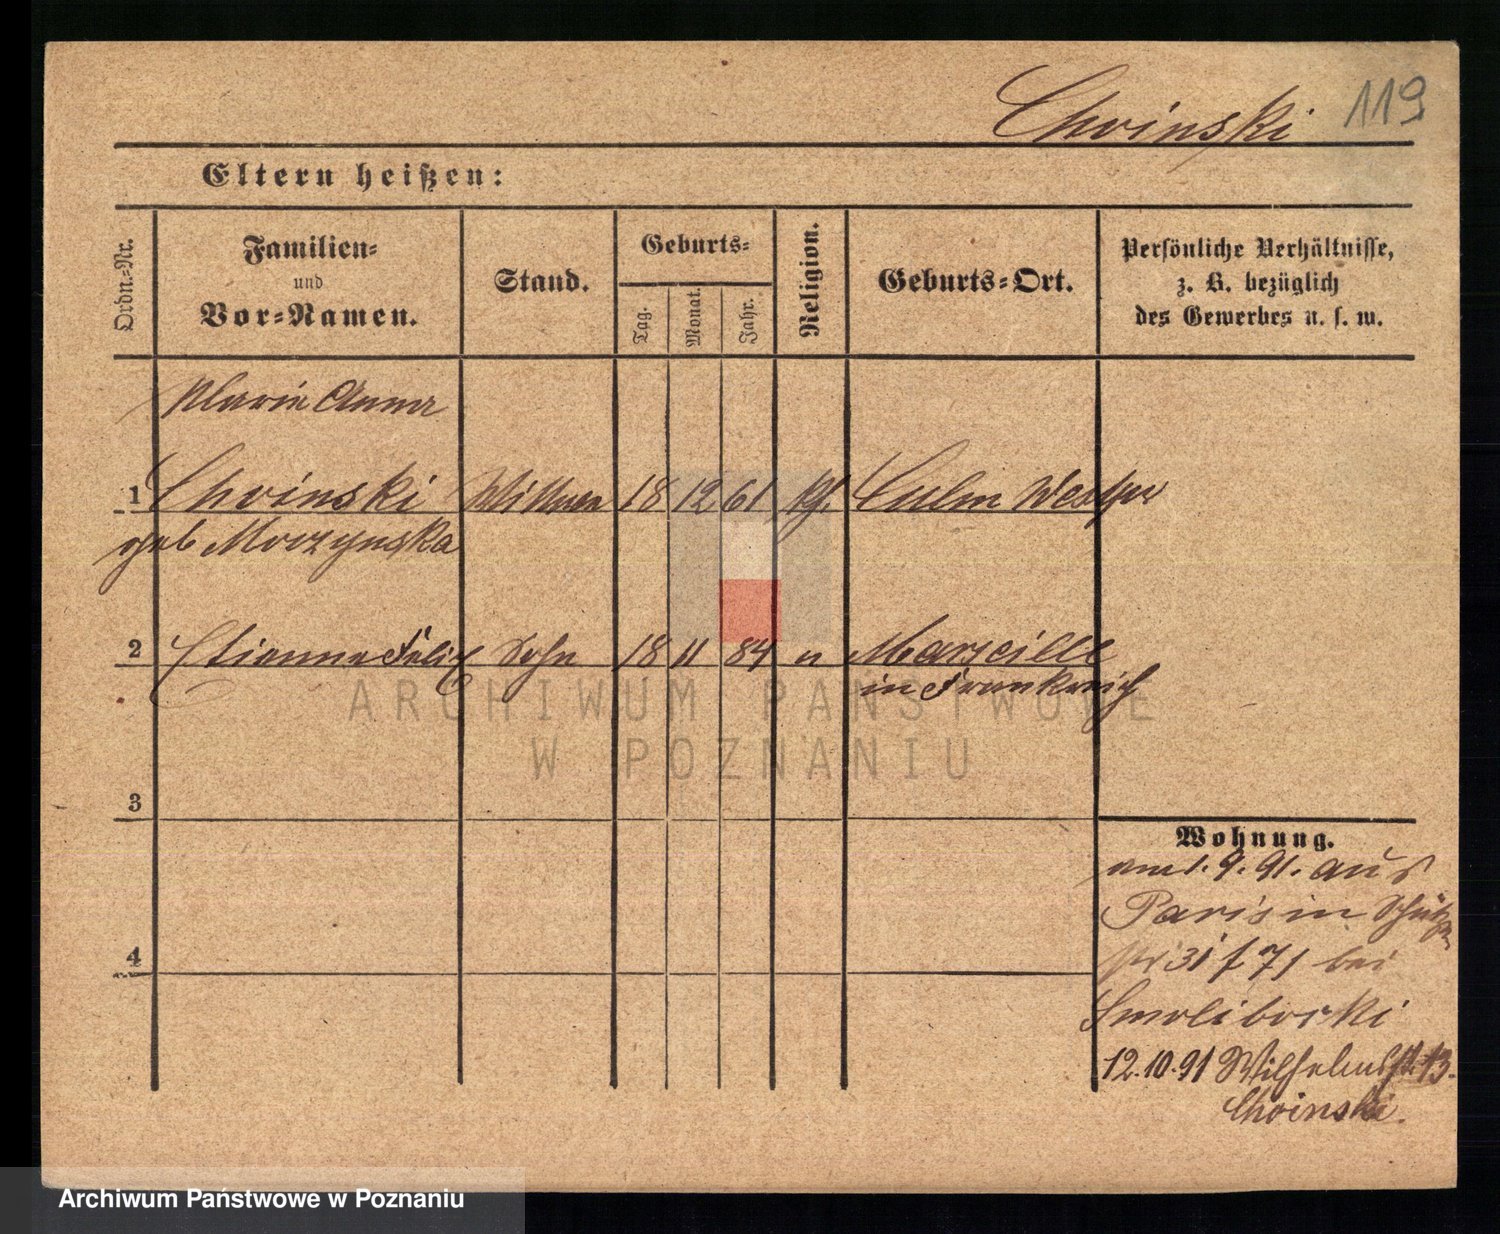 Choinski 119
Eltern heißen:
Ordn.-Nr.
Familien-
und
Vor-Namen.
Stand.
Geburts-
Tag.
Monat.
Jahr.
Religion.
Geburts-Ort.
Persönliche Verhältnisse,
z. B. bezüglich
des Gewerbes u. s. w.
Marie Anna
1 Choinski Wittwe 18 12 61 kth. Culm Westpr
geb Morzynska
2 Etienne Felix Sohn 18 11 84 " Marseille
in Frankreich
ARCHIWUM PAŃSTWOWE
W POZNANIU
3
4
Wohnung.
am 1.9.91. aus
Paris in Schützen
str 31 f 71 bei
Smoliborski
12.10.91 Wilhelmstr 13.
Choinski.
Archiwum Państwowe w Poznaniu